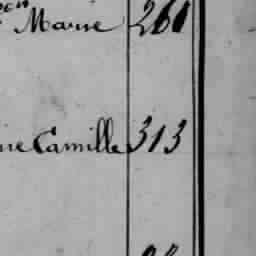 Marie 261
Camille 313